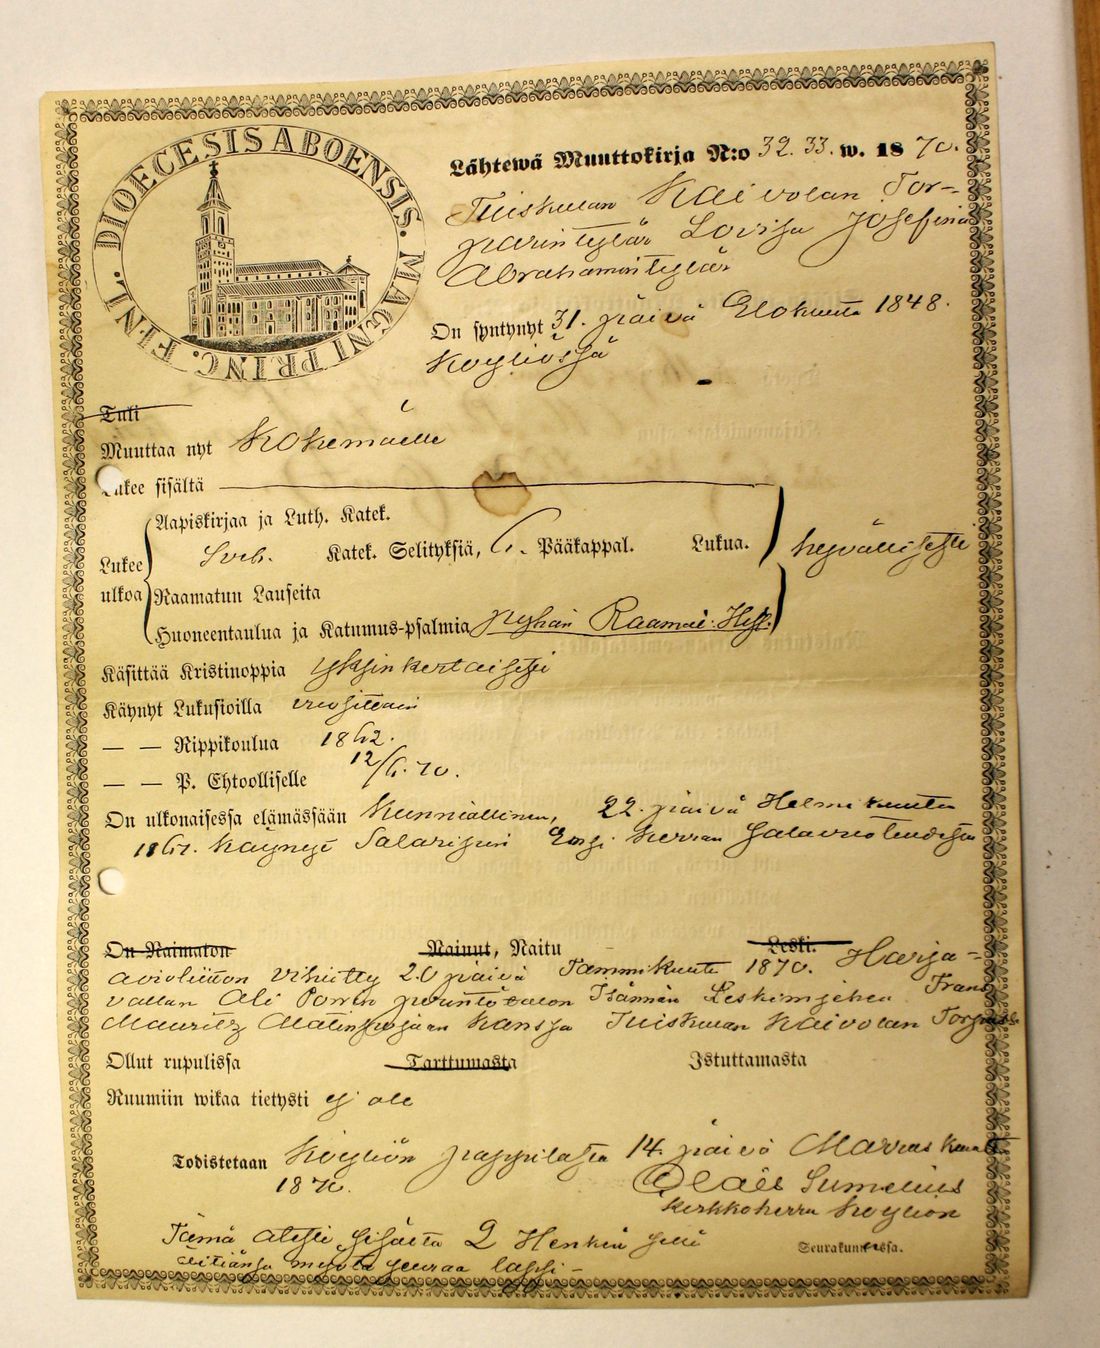 DIOECESIS ABOENSIS. MAGNI PRINC. FINL.
Lähtewä Muuttokirja N:o 32. 33. w. 1870.
Tuiskulan Kaivolan Tor-
parintytär Lovisa Josefina
Abrahamintytär
On syntynyt 31. päivä Elokuuta 1848.
Köyliössä
Tuli
Muuttaa nyt Kokemäelle
Lukee sisältä
Aapiskirjaa ja Luth. Katek.
Lukee ulkoa Sveb. Katek. Selityksiä, 6. Pääkappal. Lukua. hyvällisesti
Raamatun Lauseita
Huoneentaulua ja Katumus-psalmia pyhän Raamat. Hist.
Käsittää Kristinoppia yksinkertaisesti
Käynyt Lukusioilla vuosittain
— — Rippikoulua 1862.
— — P. Ehtoolliselle 12/6. 70.
On ulkonaisessa elämässään Kunniallinen, 22. päivä Helmikuuta
1867. Käynyt Salaripin Herran
On Naimaton Nainut, Naitu Leski. Harja-
avioliittoon vihitty 20 päivä Tammikuuta 1870.
vallan Ali talon Isännän Leskimiehen Frans
Mauritz Matinpojan kanssa Tuiskulan Kaivolan
Ollut rupulissa Tarttumasta Istuttamasta
Ruumiin wikaa tietysti ej ole
Todistetaan Köyliön pappilassa 14. päivä Marraskuuta
1870.
Olaus Sumelius
kirkkoherra Köyliön
Seurakunnassa.
Tämä atesti sisältä 2 Henkeä sillä
äitiänsä myötä seuraa lapsi -